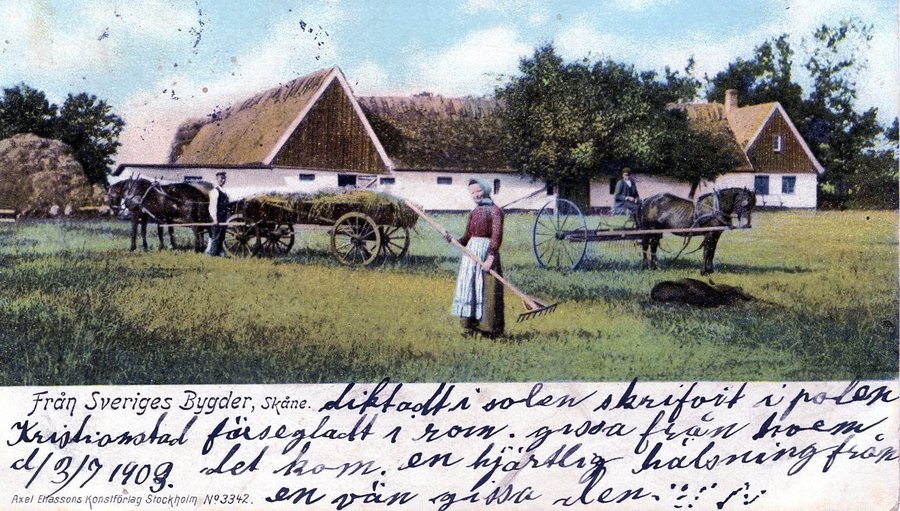 Från Sveriges Bygder, Skåne. diktadt i solen skrifvit i polen
Kristianstad försegladt i rom. gissa från hvem
d/3/7 1903. det kom. en hjärtlig hälsning från
en vän gissa den.
Axel Eliassons Konstförlag Stockholm Nº3342.